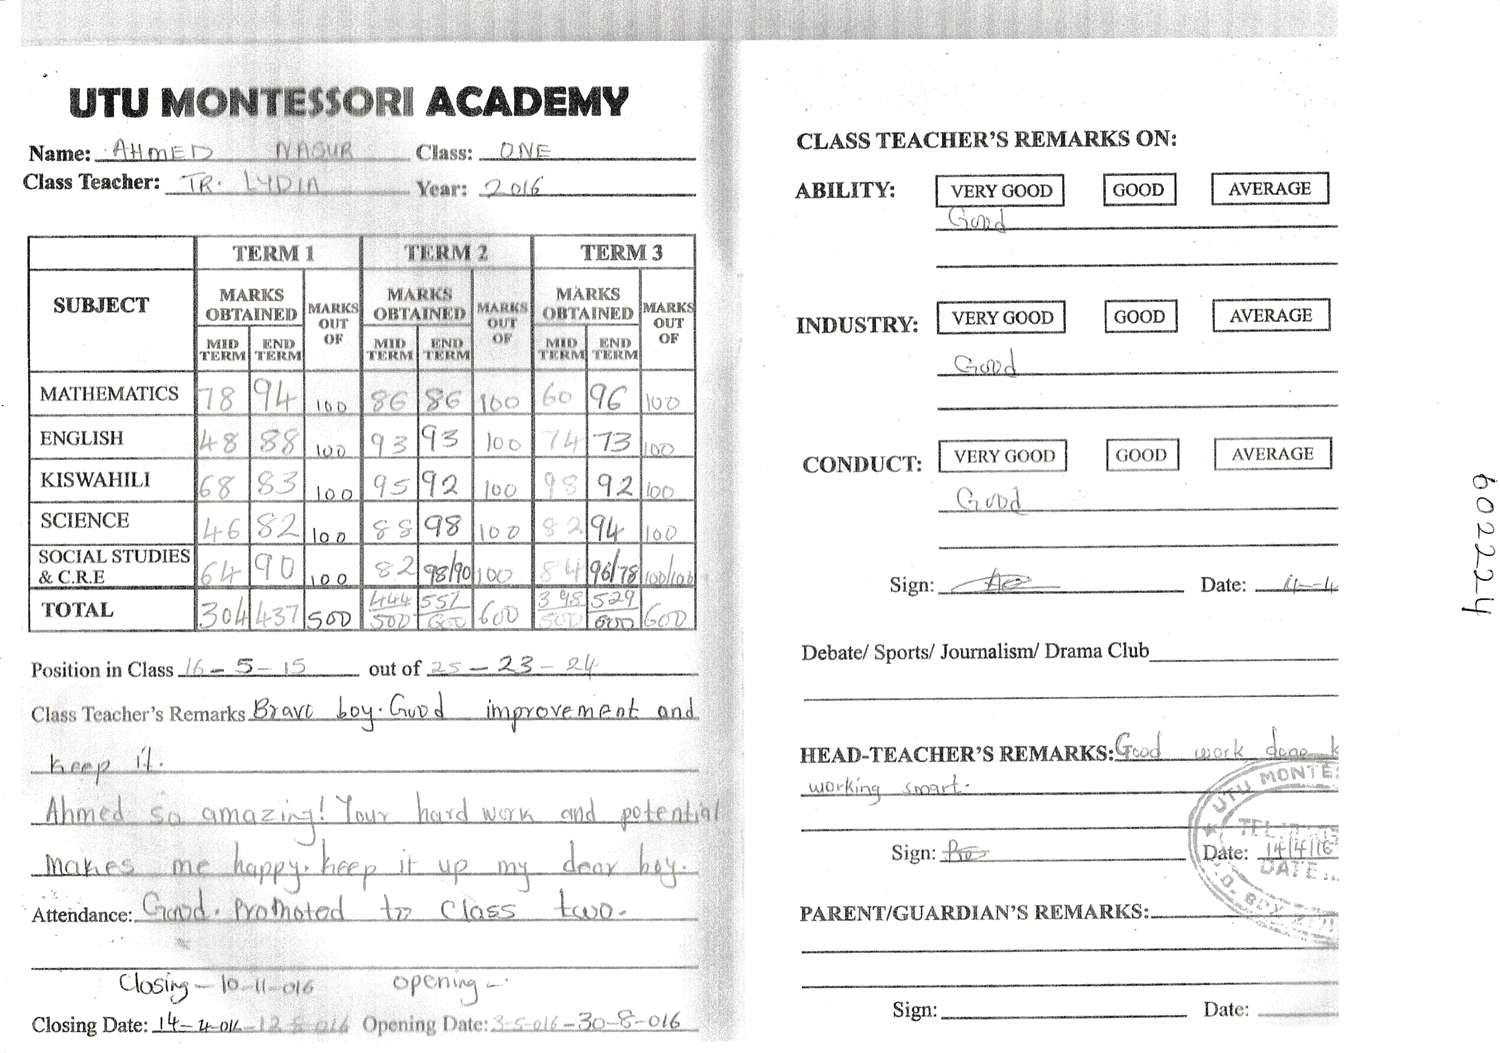 UTU MONTESSORI ACADEMY
Name: AHMED NASUR Class: ONE
Class Teacher: TR. LYDIA Year: 2016
SUBJECT TERM 1 TERM 2 TERM 3
MARKS OBTAINED MARKS OUT OF MARKS OBTAINED MARKS OUT OF MARKS OBTAINED MARKS OUT OF
MID TERM END TERM MID TERM END TERM MID TERM END TERM
MATHEMATICS 78 94 100 86 86 100 60 96 100
ENGLISH 48 88 100 93 93 100 74 73 100
KISWAHILI 68 83 100 95 92 100 98 92 100
SCIENCE 46 82 100 88 98 100 82 94 100
SOCIAL STUDIES & C.R.E 64 90 100 82 98/90 100 84 96/78 100/100
TOTAL 304 437 500 444/500 551/600 600 398/500 529/600 600
Position in Class 16 - 5 - 15 out of 25 - 23 - 24
Class Teacher's Remarks Brave boy. Good improvement and
keep it.
Ahmed so amazing! Your hard work and potential
makes me happy. keep it up my dear boy.
Attendance: Good. Promoted to Class two.
Closing - 10-11-016 opening -
Closing Date: 14-4-016 - 12-8-016 Opening Date: 3-5-016 - 30-8-016
CLASS TEACHER'S REMARKS ON:
ABILITY: VERY GOOD GOOD AVERAGE
Good
INDUSTRY: VERY GOOD GOOD AVERAGE
Good
CONDUCT: VERY GOOD GOOD AVERAGE
Good
Sign: Date: 14-4
Debate/ Sports/ Journalism/ Drama Club
HEAD-TEACHER'S REMARKS: Good work done k
working smart.
UTU MONTES
TEL:
Sign: Date: 14/4/16
DATE
BOX
PARENT/GUARDIAN'S REMARKS:
Sign: Date:
602224